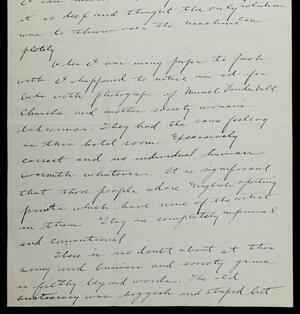 it so deep and thought the only solution
was to throw over the machine com
pletely
When I was using paper to pack
with I happened to notice an ad. for
beds with photograph of Muriel Vanderbilt
Church's and another society woman's
bedrooms. They had the same feeling
as this hotel room. Excessively
correct and no individual human
warmth whatever. It is significant
that those people adore English sporting
prints which have none of the artist
in them. They are completely impersonal
and conventional.
There is no doubt about it this
money and business and society game
is filthy beyond words. The old
aristocracy was sluggish and stupid but